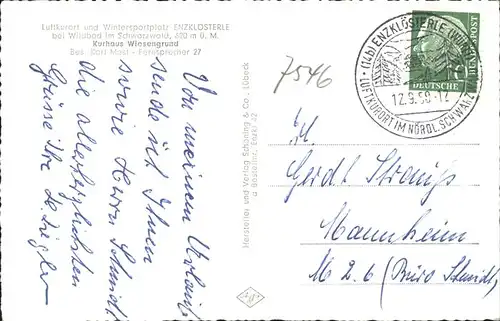 Luftkurort und Wintersportplatz ENZKLÖSTERLE
bei Wildbad im Schwarzwald, 620 m ü. M.
Kurhaus Wiesengrund
Bes. Karl Mast - Fernsprecher 27
Von meinem Urlaub
sende ich Ihnen
sowie Herrn Schmidt
die allerherzlichsten
Grüsse Ihr
Hersteller und Verlag Schöning & Co., Lübeck
7546
(14b) ENZKLÖSTERLE
12.9.58-12
LUFTKURORT IM NÖRDL. SCHWARZW.
DEUTSCHE BUNDESPOST
Gerdt Strauß
Mannheim
M 2. 6 (Büro Schmidt)